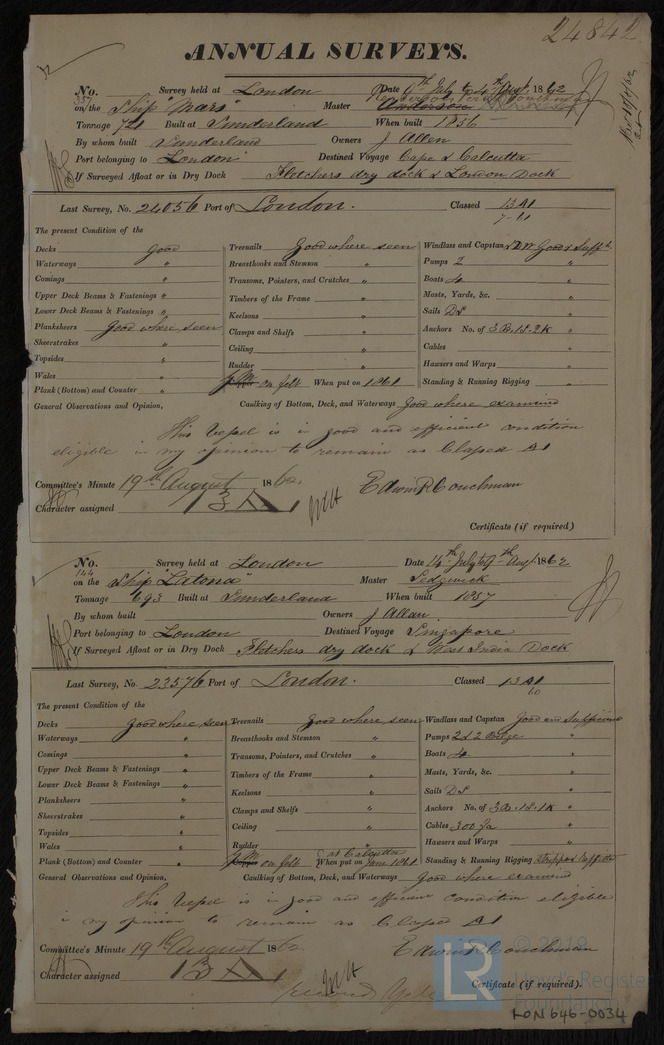 24842
ANNUAL SURVEYS.
No. 357 Survey held at London Date 9th July to 4th Augt. 1862
on the Ship "Mars" Master Anderson
Tonnage 721 Built at Sunderland When built 1856
By whom built Sunderland Owners J Allen
Port belonging to London Destined Voyage Cape & Calcutta
If Surveyed Afloat or in Dry Dock Fletchers dry dock & London Dock
Last Survey, No. 24056 Port of London. Classed 13 A1
7-61
The present Condition of the
Decks good Treenails Good where seen Windlass and Capstan Good & Sufft
Waterways " Breasthooks and Stemson " Pumps 2 "
Comings " Transoms, Pointers, and Crutches " Boats 4 "
Upper Deck Beams & Fastenings " Timbers of the Frame " Masts, Yards, &c. "
Lower Deck Beams & Fastenings " Keelsons " Sails DS "
Planksheers Good where seen Clamps and Shelfs " Anchors No. of 3B.1S.2K "
Sheerstrakes " Ceiling " Cables "
Topsides " Rudder " Hawsers and Warps "
Wales " Y.M. on felt When put on 1861 Standing & Running Rigging "
Plank (Bottom) and Counter "
General Observations and Opinion, Caulking of Bottom, Deck, and Waterways Good where examined
This Vessel is in good and efficient condition
eligible in my opinion to remain as Classed A1
Committee's Minute 19th August 1862 Edwin R Couchman
Character assigned 13 A 1
Certificate (if required)
No. 144 Survey held at London Date 14th July to 9th Augt 1862
on the Ship "Latona" Master Sedgwick
Tonnage 693 Built at Sunderland When built 1857
By whom built Owners J Allan
Port belonging to London Destined Voyage Singapore
If Surveyed Afloat or in Dry Dock Fletchers dry dock & West India Dock
Last Survey, No. 23576 Port of London. Classed 13 A1
60
The present Condition of the
Decks Good where seen Treenails Good where seen Windlass and Capstan Good and Sufficient
Waterways " Breasthooks and Stemson " Pumps 2 & 2 Bilge "
Comings " Transoms, Pointers, and Crutches " Boats 4 "
Upper Deck Beams & Fastenings " Timbers of the Frame " Masts, Yards, &c. "
Lower Deck Beams & Fastenings " Keelsons " Sails DS "
Planksheers " Clamps and Shelfs " Anchors No. of 3B.1S.1K "
Sheerstrakes " Ceiling " Cables 300 fa "
Topsides " Rudder " Hawsers and Warps "
Wales " Y.M. on felt When put on at Calcutta June 1861 Standing & Running Rigging
Plank (Bottom) and Counter "
General Observations and Opinion, Caulking of Bottom, Deck, and Waterways Good where examined
This Vessel is in good and efficient condition eligible
in my opinion to remain as Classed A1
Committee's Minute 19th August 1862 Edwin R Couchman
Character assigned 13 A 1
Certificate (if required).
LR
© 2018
Lloyd's Register
Foundation
LON646-0034